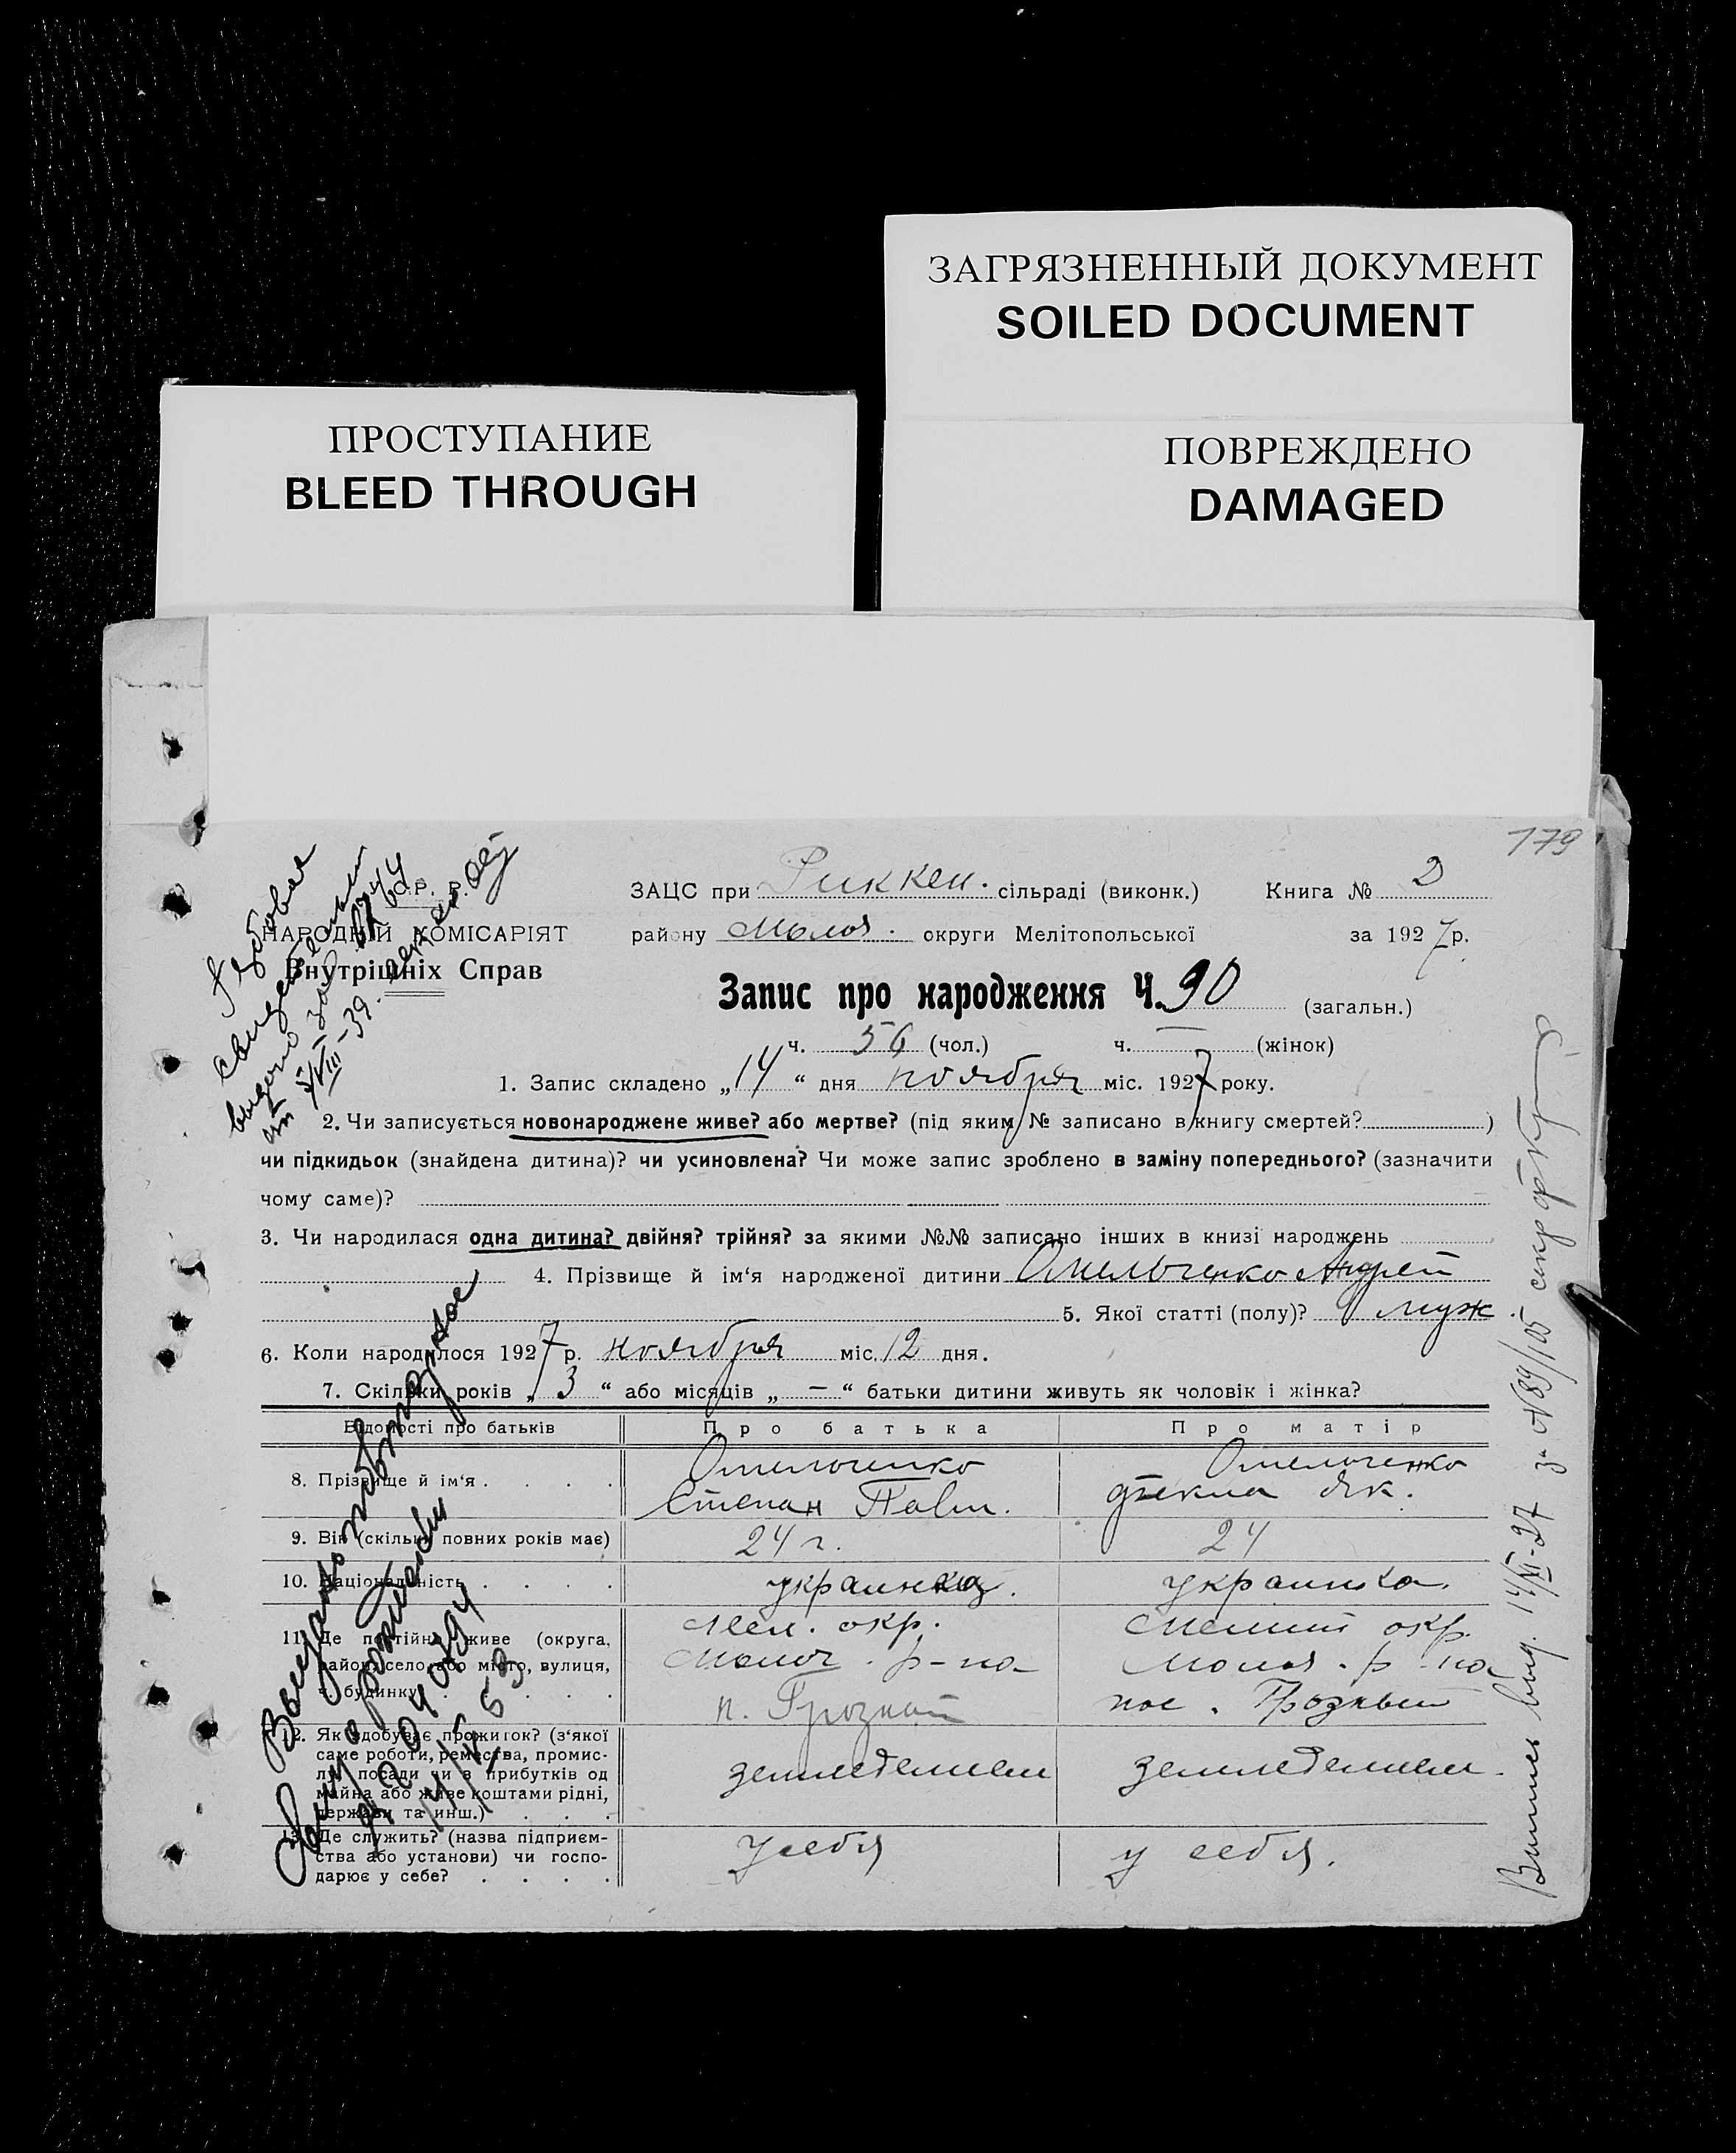 ЗАГРЯЗНЕННЫЙ ДОКУМЕНТ
SOILED DOCUMENT
ПРОСТУПАНИЕ
BLEED THROUGH
ПОВРЕЖДЕНО
DAMAGED
179
ЗАЦС при Риккен. сільраді (виконк.) Книга № 2
НАРОДНІЙ КОМІСАРІЯТ
району Молоч. округи Мелітопольської за 1927 р.
Внутрішніх Справ
Запис про народження Ч. 90 (загальн.)
ч. 56 (чол.) ч. — (жінок)
1. Запис складено „14“ дня ноября міс. 1927 року.
2. Чи записується новонароджене живе? або мертве? (під яким № записано в книгу смертей? )
чи підкидьок (знайдена дитина)? чи усиновлена? Чи може запис зроблено в заміну попереднього? (зазначити
чому саме)?
3. Чи народилася одна дитина? двійня? трійня? за якими №№ записано інших в книзі народжень
4. Прізвище й ім‘я народженої дитини Омельченко Андрей
5. Якої статті (полу)? муж.
6. Коли народилося 1927 р. ноября міс. 12 дня.
7. Скільки років „3“ або місяців „—“ батьки дитини живуть як чоловік і жінка?
Відомості про батьків Про батька Про матір
8. Прізвище й ім‘я Омельченко Степан Павл. Омельченко Фекла Як.
9. Вік (скільки повних років має) 24 г. 24
10. Національність украинец. украинка.
11. Де постійно живе (округа, район, село або місто, вулиця, ч. будинку Мел. окр. Молоч. р-на п. Грозный Мелит окр. Молоч. р-на пос. Грозный
12. Як здобуває прожиток? (з‘якої саме роботи, ремества, промислу, посади чи з прибутків од майна або живе коштами рідні, держави та инш.) земледелием земледелием.
13. Де служить? (назва підприємства або установи) чи господарює у себе? у себя у себя.
Выдано повторное
свид о рождении
14/V 63
Выпись выд. 14/XI-27 за № 89/105 секр